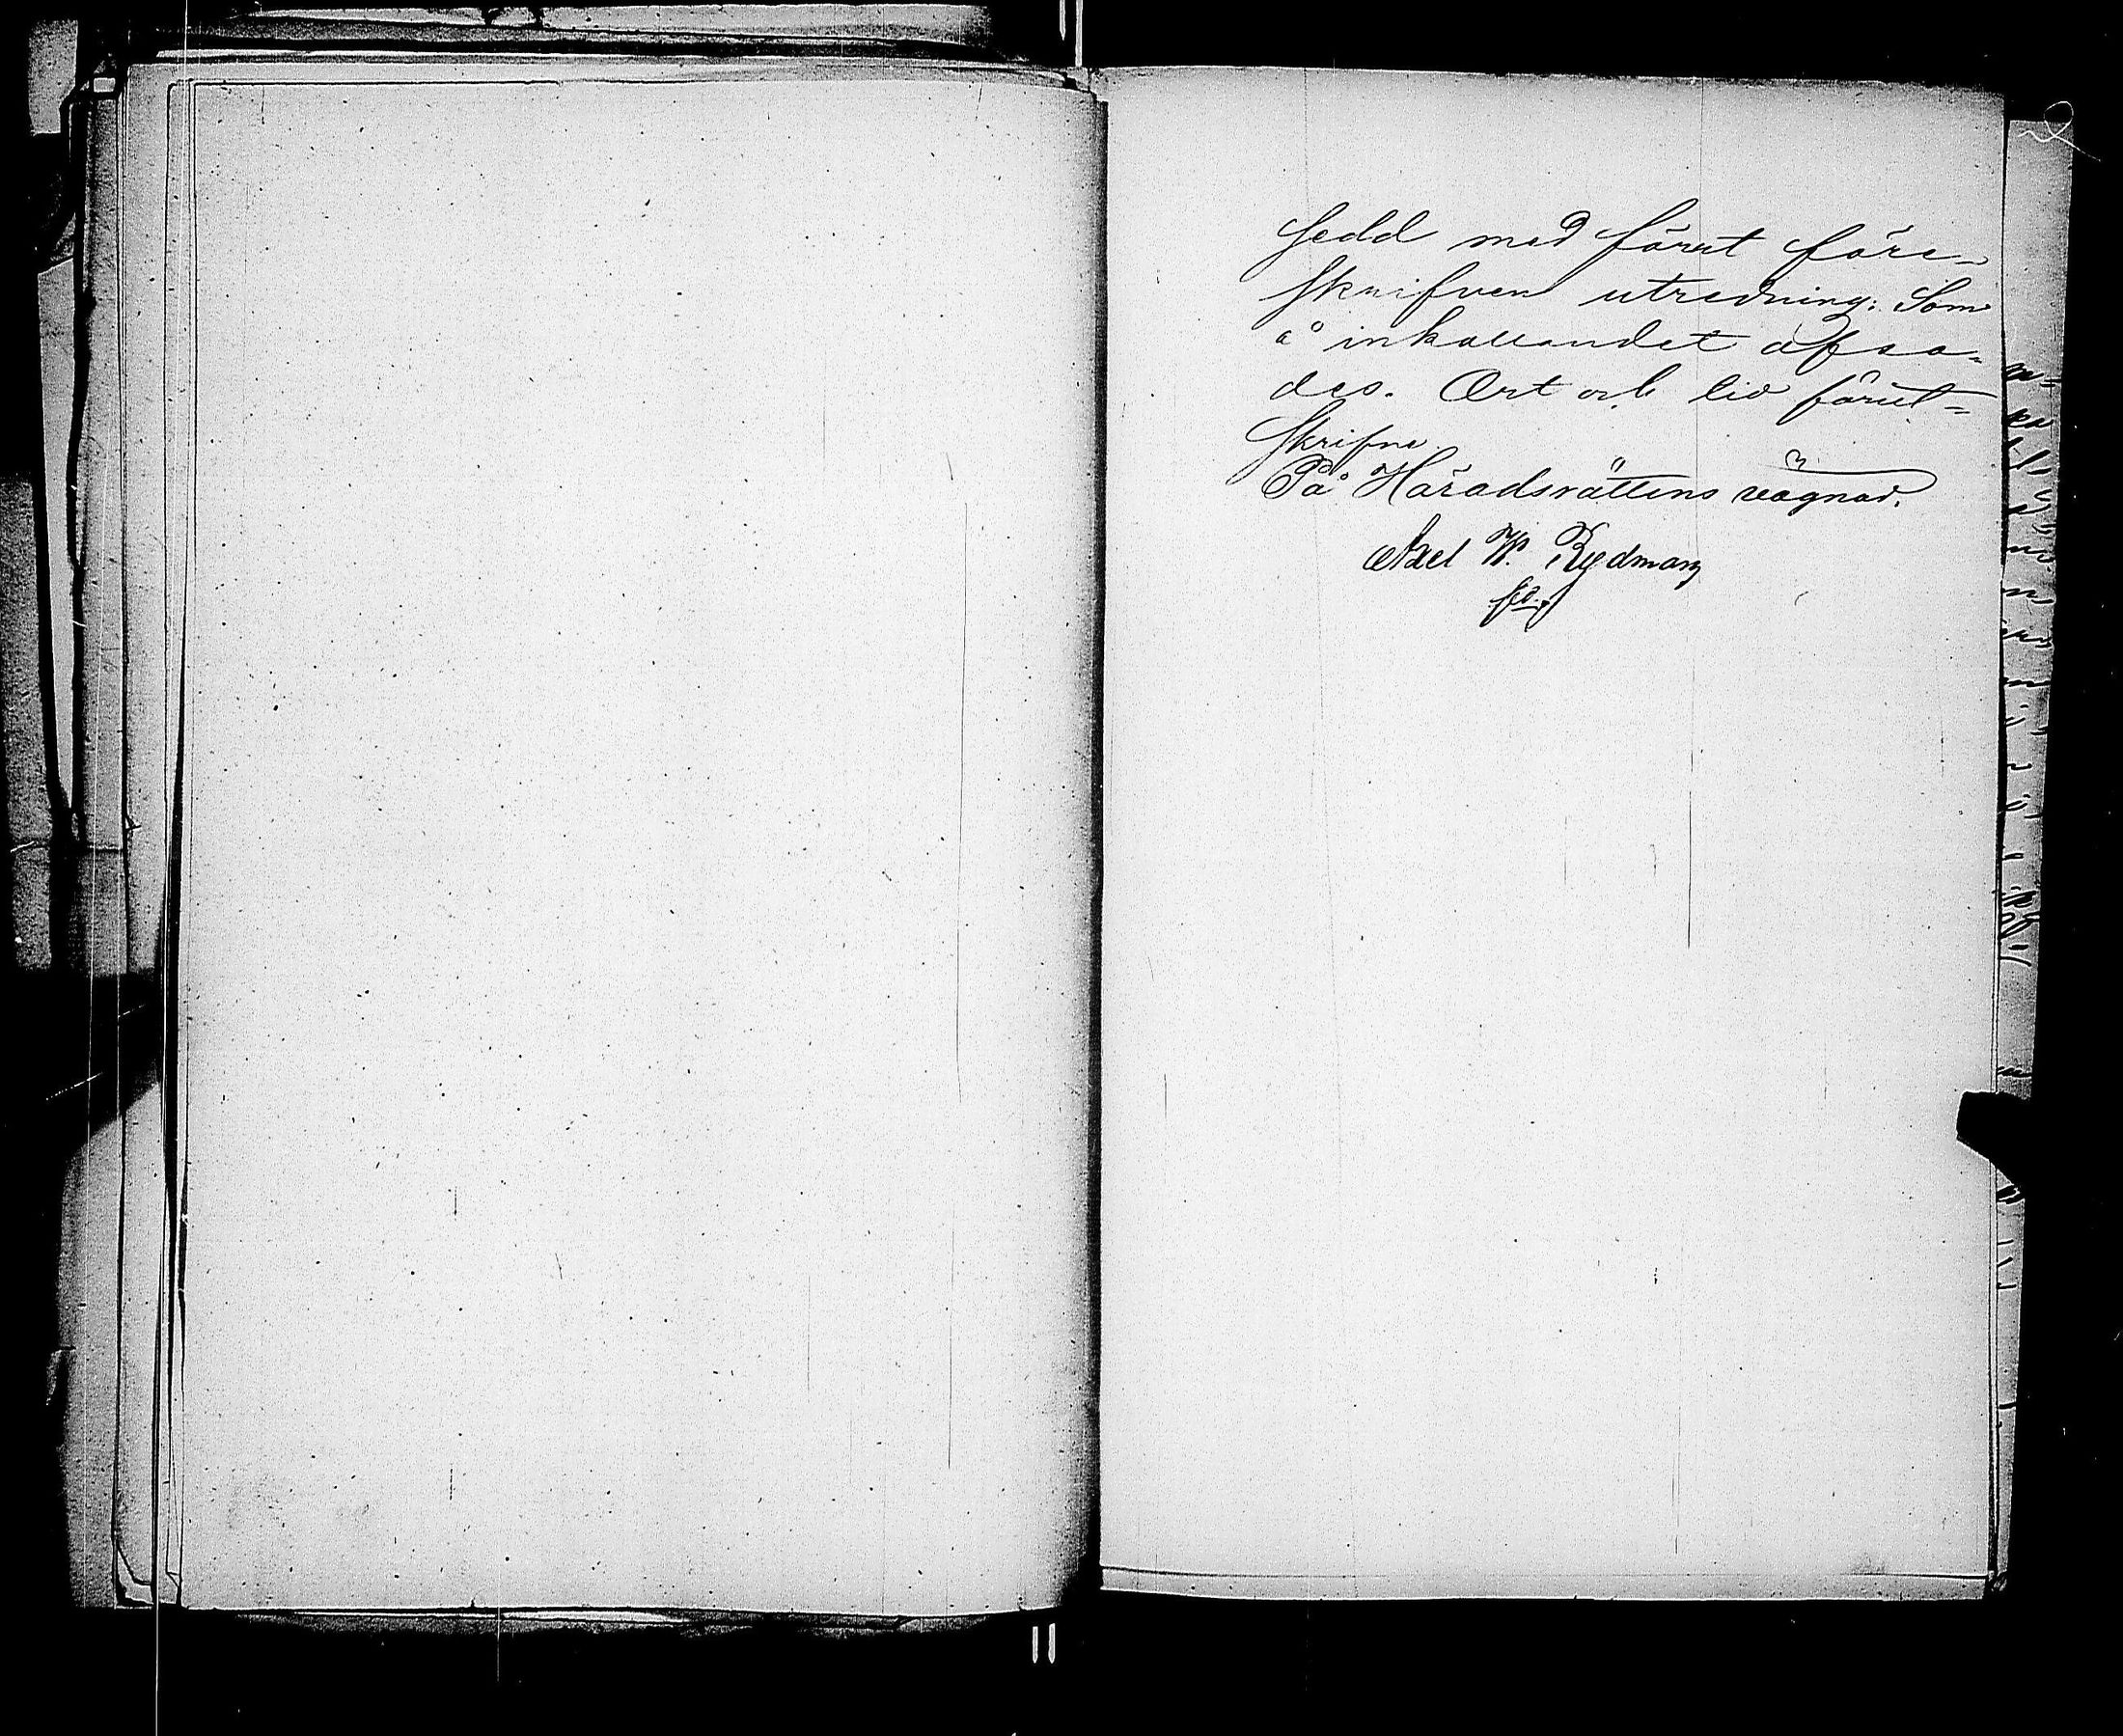 sedd med förut före-
skrifven utredning; Som
å inkallandet afsa-
des. Ort och tid förut-
skrifne.
På Häradsrättens vägnar.
Axel W. Rydman